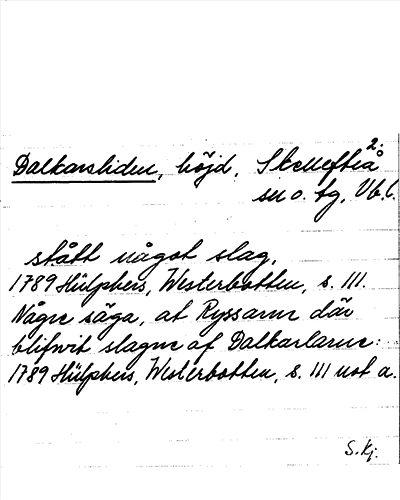 2.
Dalkarsliden, höjd, Skellefteå
sn o. tg, Vb. l.
stått något slag,
1789 Hülphers, Westerbotten, s. 111.
Någre säga, at Ryssarne där
blifwit slagne af Dalkarlarne:
1789 Hülphers, Westerbotten, s. 111 not a.
S. Kj.